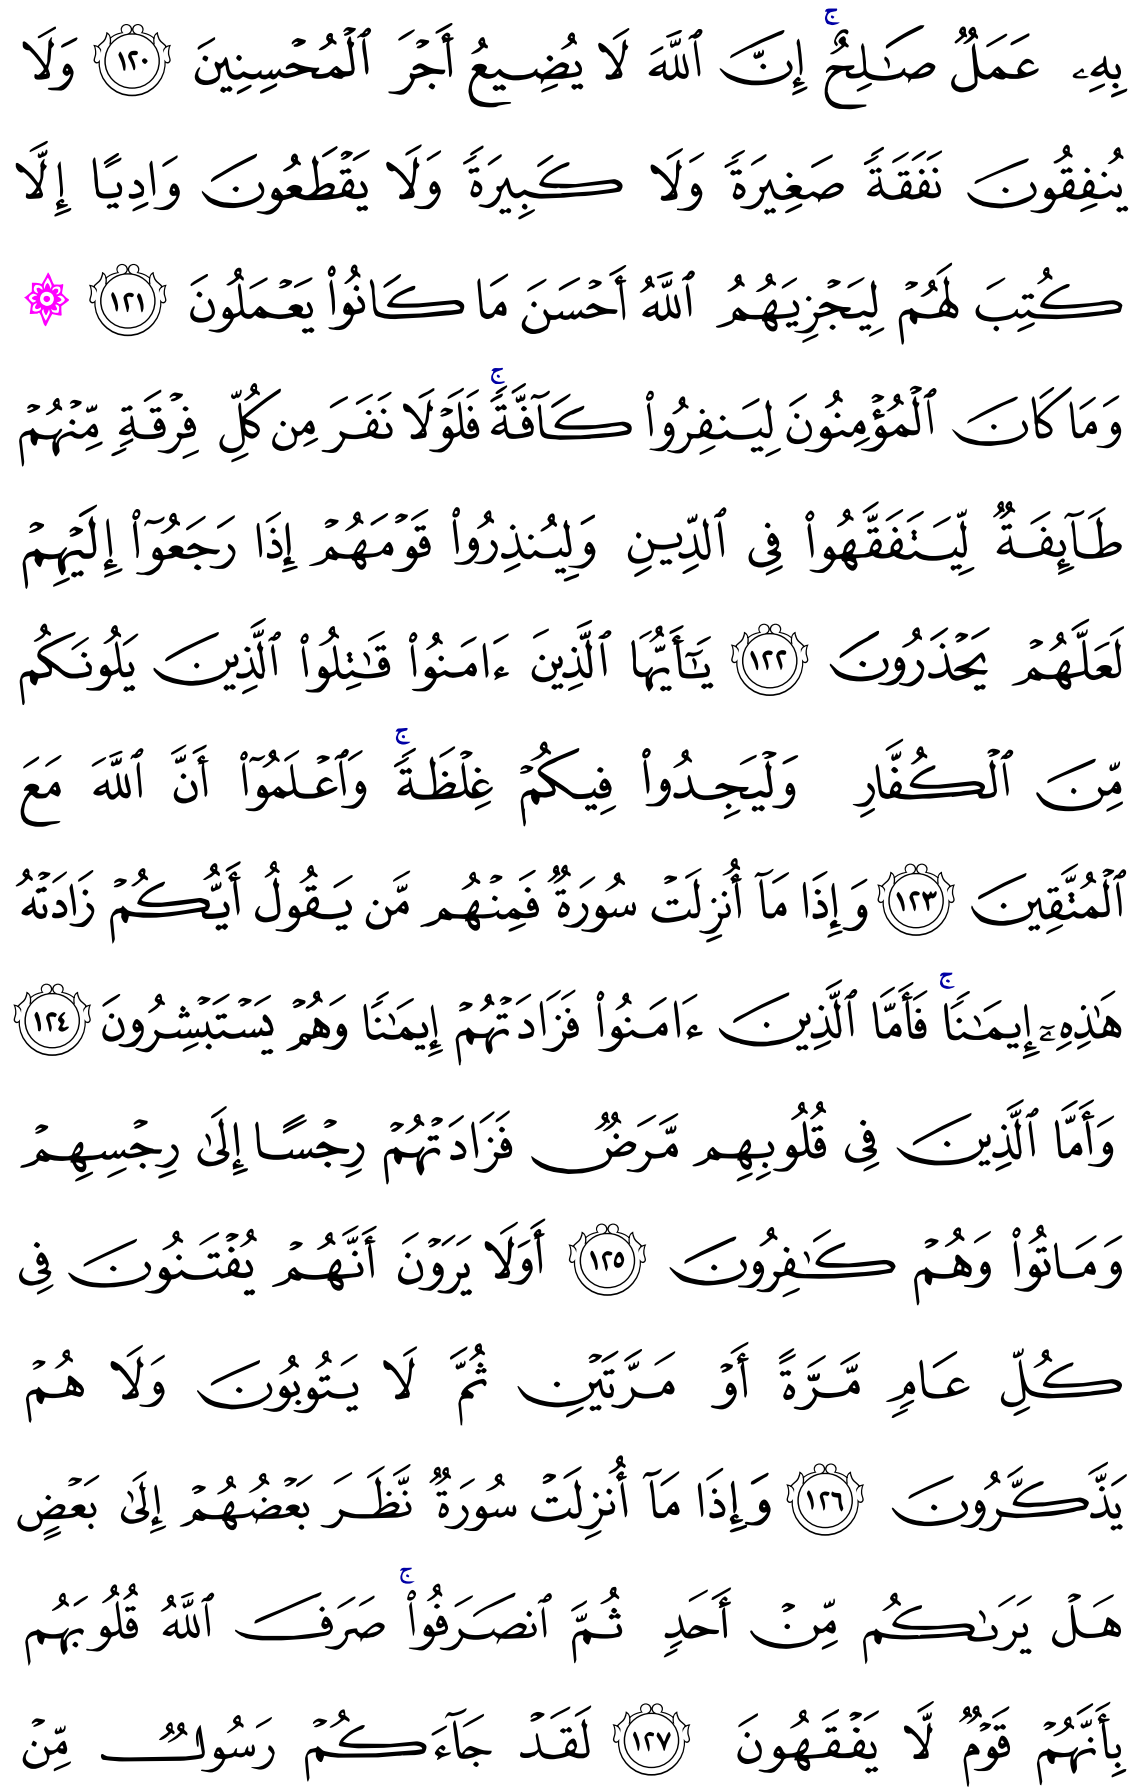 بِهِۦ عَمَلٌ صَـٰلِحٌ ۚ إِنَّ ٱللَّهَ لَا يُضِيعُ أَجْرَ ٱلْمُحْسِنِينَ ١٢٠ وَلَا
يُنفِقُونَ نَفَقَةً صَغِيرَةً وَلَا كَبِيرَةً وَلَا يَقْطَعُونَ وَادِيًا إِلَّا
كُتِبَ لَهُمْ لِيَجْزِيَهُمُ ٱللَّهُ أَحْسَنَ مَا كَانُوا۟ يَعْمَلُونَ ١٢١
وَمَا كَانَ ٱلْمُؤْمِنُونَ لِيَنفِرُوا۟ كَآفَّةً ۚ فَلَوْلَا نَفَرَ مِن كُلِّ فِرْقَةٍ مِّنْهُمْ
طَآئِفَةٌ لِّيَتَفَقَّهُوا۟ فِى ٱلدِّينِ وَلِيُنذِرُوا۟ قَوْمَهُمْ إِذَا رَجَعُوٓا۟ إِلَيْهِمْ
لَعَلَّهُمْ يَحْذَرُونَ ١٢٢ يَـٰٓأَيُّهَا ٱلَّذِينَ ءَامَنُوا۟ قَـٰتِلُوا۟ ٱلَّذِينَ يَلُونَكُم
مِّنَ ٱلْكُفَّارِ وَلْيَجِدُوا۟ فِيكُمْ غِلْظَةً ۚ وَٱعْلَمُوٓا۟ أَنَّ ٱللَّهَ مَعَ
ٱلْمُتَّقِينَ ١٢٣ وَإِذَا مَآ أُنزِلَتْ سُورَةٌ فَمِنْهُم مَّن يَقُولُ أَيُّكُمْ زَادَتْهُ
هَـٰذِهِۦٓ إِيمَـٰنًا ۚ فَأَمَّا ٱلَّذِينَ ءَامَنُوا۟ فَزَادَتْهُمْ إِيمَـٰنًا وَهُمْ يَسْتَبْشِرُونَ ١٢٤
وَأَمَّا ٱلَّذِينَ فِى قُلُوبِهِم مَّرَضٌ فَزَادَتْهُمْ رِجْسًا إِلَىٰ رِجْسِهِمْ
وَمَاتُوا۟ وَهُمْ كَـٰفِرُونَ ١٢٥ أَوَلَا يَرَوْنَ أَنَّهُمْ يُفْتَنُونَ فِى
كُلِّ عَامٍ مَّرَّةً أَوْ مَرَّتَيْنِ ثُمَّ لَا يَتُوبُونَ وَلَا هُمْ
يَذَّكَّرُونَ ١٢٦ وَإِذَا مَآ أُنزِلَتْ سُورَةٌ نَّظَرَ بَعْضُهُمْ إِلَىٰ بَعْضٍ
هَلْ يَرَىٰكُم مِّنْ أَحَدٍ ثُمَّ ٱنصَرَفُوا۟ ۚ صَرَفَ ٱللَّهُ قُلُوبَهُم
بِأَنَّهُمْ قَوْمٌ لَّا يَفْقَهُونَ ١٢٧ لَقَدْ جَآءَكُمْ رَسُولٌ مِّنْ